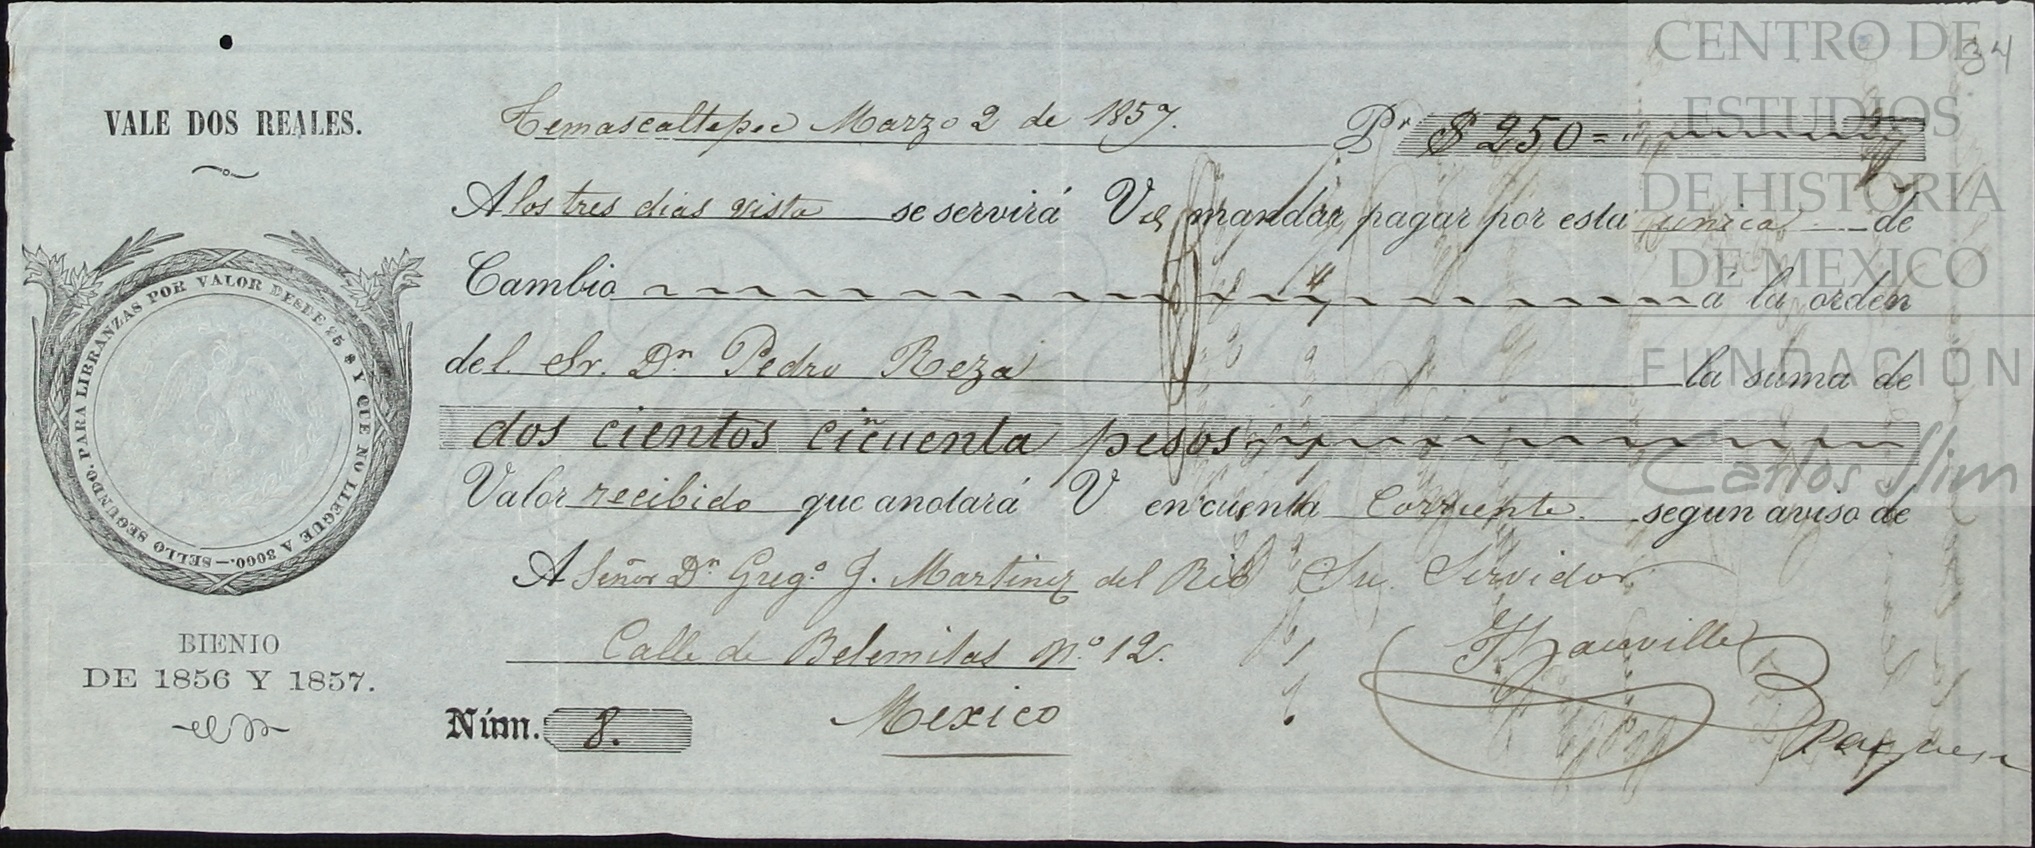 VALE DOS REALES.
PARA LIBRANZAS POR VALOR DESDE 25 $ Y QUE NO LLEGUE A 3000.—SELLO SEGUNDO.
BIENIO
DE 1856 Y 1857.
34
Temascaltepec Marzo 2 de 1857. Pr. $ 250=
A los tres dias vista se servirá V mandar pagar por esta unica de
Cambio á la orden
del Sr. Dn. Pedro Reza la suma de
dos cientos cincuenta pesos
Valor recibido que anotará V en cuenta Corriente segun aviso de
A Señor Dn. Grego. J. Martinez del Rio Su Servidor
Calle de Belemitas No. 12.
Mexico
Núm. 8.
CENTRO DE
ESTUDIOS
DE HISTORIA
DE MEXICO
FUNDACION
Carlos Slim